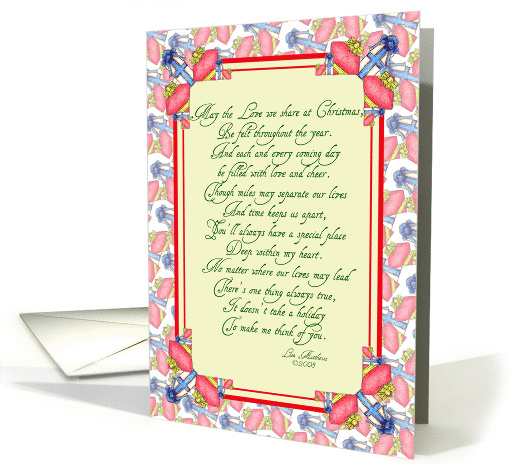 May the Love we share at Christmas,
Be felt throughout the year.
And each and every coming day
be filled with love and cheer.
Though miles may separate our lives
And time keeps us apart,
You'll always have a special place
Deep within my heart.
No matter where our lives may lead
There's one thing always true,
It doesn't take a holiday
To make me think of you.
Lisa Mathews
©2008